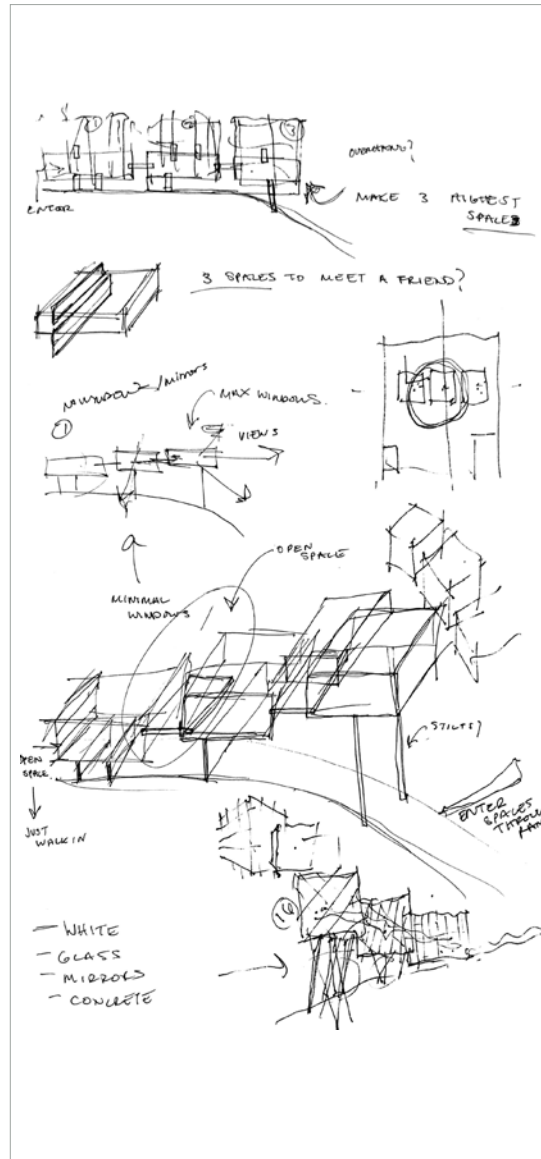 ① ② ③
OVERHANG?
ENTER
MAKE 3 HIGHEST
SPACES
3 SPACES TO MEET A FRIEND?
/MIRRORS
MAX WINDOWS.
①
VIEWS
OPEN
SPACE
MINIMAL
WINDOWS
STILTS?
OPEN
SPACE
JUST
WALK IN
ENTER
SPACES
— WHITE
— GLASS
— MIRRORS
— CONCRETE